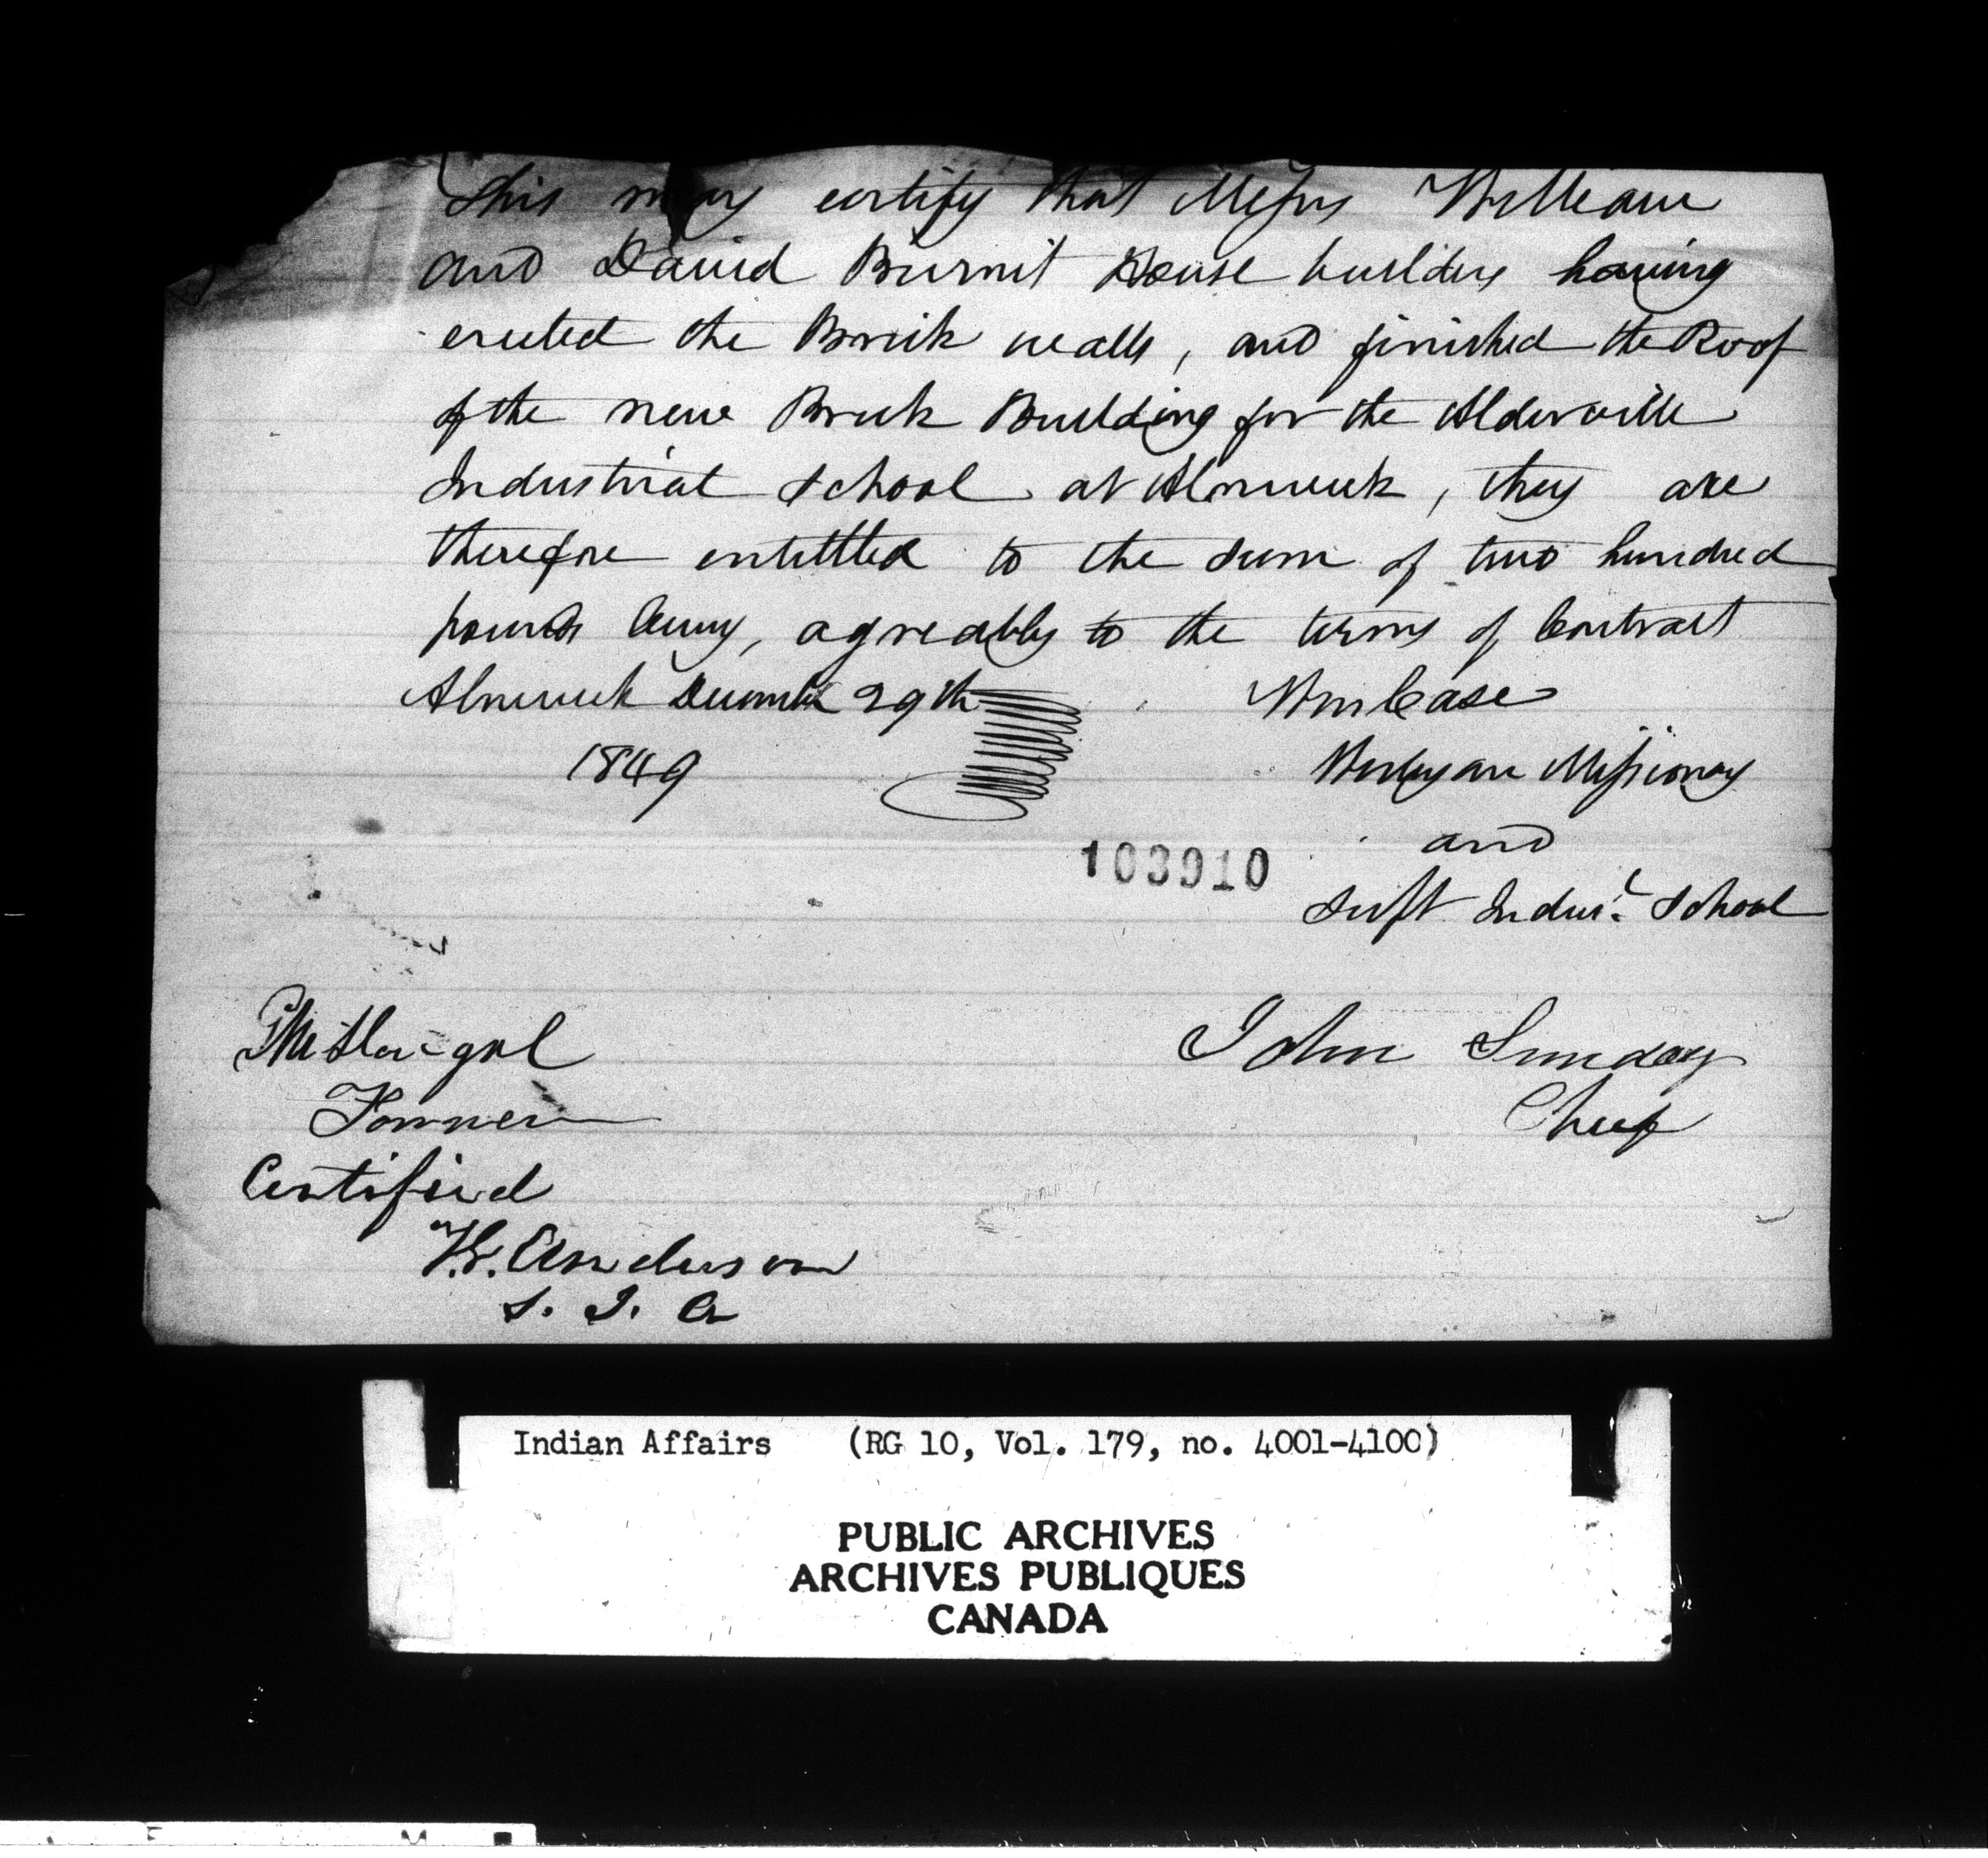 This may certify that Messrs William
and David Burnit House builders having
erected the Brick walls, and finished the Roof
of the new Brick Building for the Alderville
Industrial School at Alnwick, they are
therefore entittled to the sum of two hundred
pounds Cuny, agreeably to the terms of Contract
Alnwick December 29th
1849
Wm Case
Wesleyan Missionary
and
Supt Indusl School
103910
John Sunday
Chief
Certified
T.G. Anderson
S. I. A
Indian Affairs (RG 10, Vol. 179, no. 4001-4100)
PUBLIC ARCHIVES
ARCHIVES PUBLIQUES
CANADA